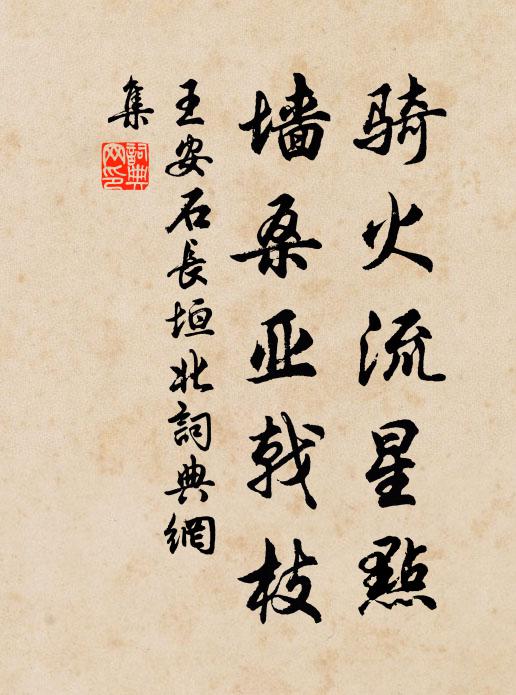 骑火流星點
墙桑亚戟枝
王安石長垣北詞典網
集
詞典
网印